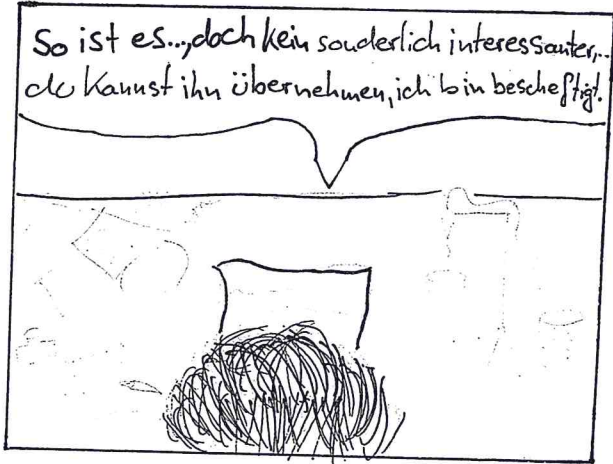 So ist es..., doch kein sonderlich interessanter,..
du kannst ihn übernehmen, ich bin bescheftigt!